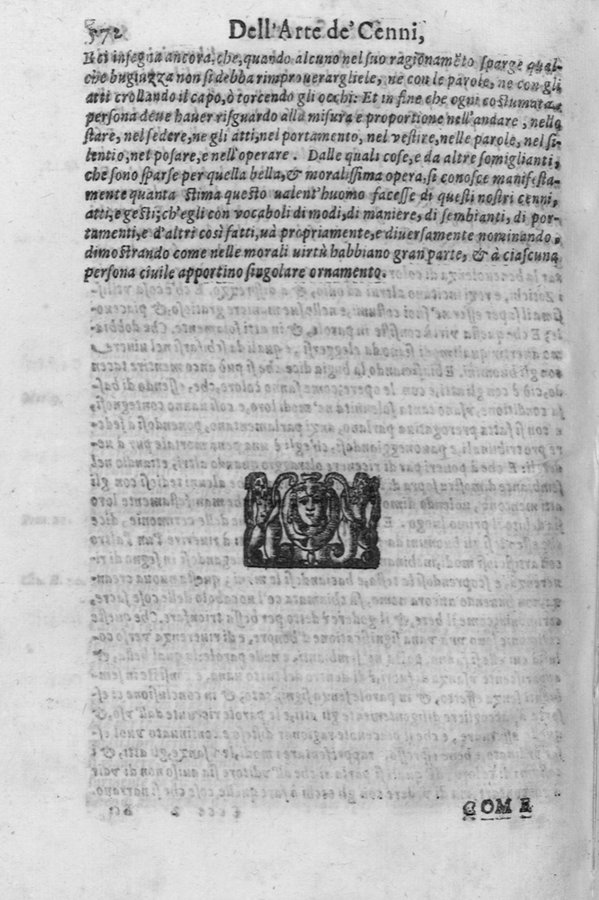 572 Dell'Arte de' Cenni,
Et ci insegna ancora, che, quando alcuno nel suo ragionamẽto sparge qual-
che bugiuzza non si debba rimprouerargliele, ne con le parole, ne con gli
atti crollando il capo, ò torcendo gli occhi: Et in fine che ogni costumata
persona deue hauer risguardo alla misura e proportione nell'andare, nello
stare, nel sedere, ne gli atti, nel portamento, nel vestire, nelle parole, nel si-
lentio, nel posare, e nell'operare. Dalle quali cose, e da altre somiglianti,
che sono sparse per quella bella, & moralissima opera, si conosce manifesta-
mente quanta stima questo ualent'huomo facesse di questi nostri cenni,
atti, e gesti; ch'egli con vocaboli di modi, di maniere, di sembianti, di por-
tamenti, e d'altri così fatti, uà propriamente, e diuersamente nominando,
dimostrando come nelle morali virtù habbiano gran parte, & à ciascuna
persona ciuile apportino singolare ornamento.
COME